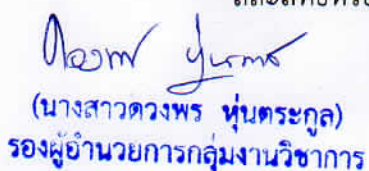 (นางสาวดวงพร หุ่นตระกูล)
รองผู้อำนวยการกลุ่มงานวิชาการ